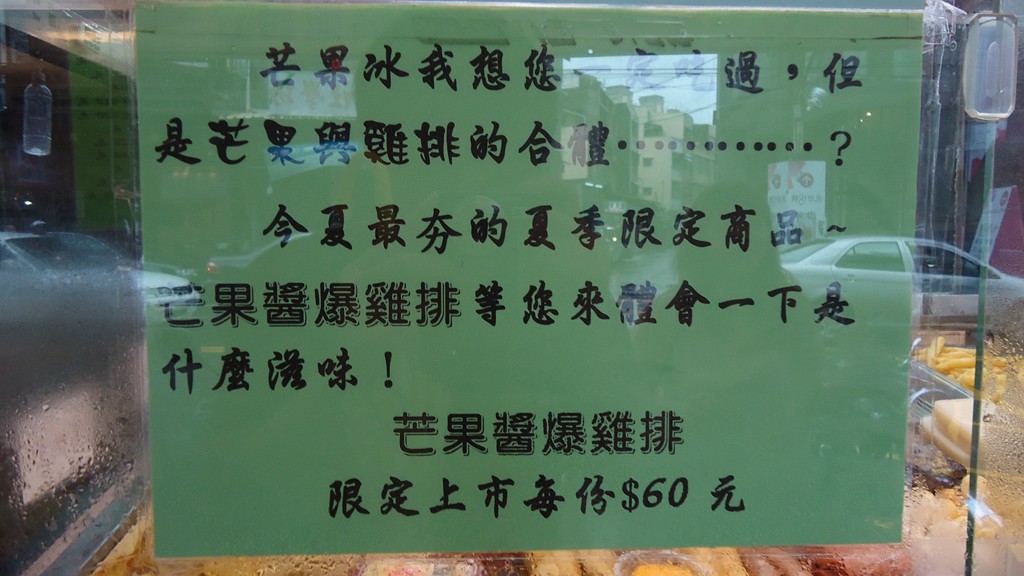 芒果冰我想您一定吃過，但
是芒果與雞排的合體…………？
今夏最夯的夏季限定商品~
芒果醬爆雞排等您來體會一下是
什麼滋味！
芒果醬爆雞排
限定上市每份$60 元